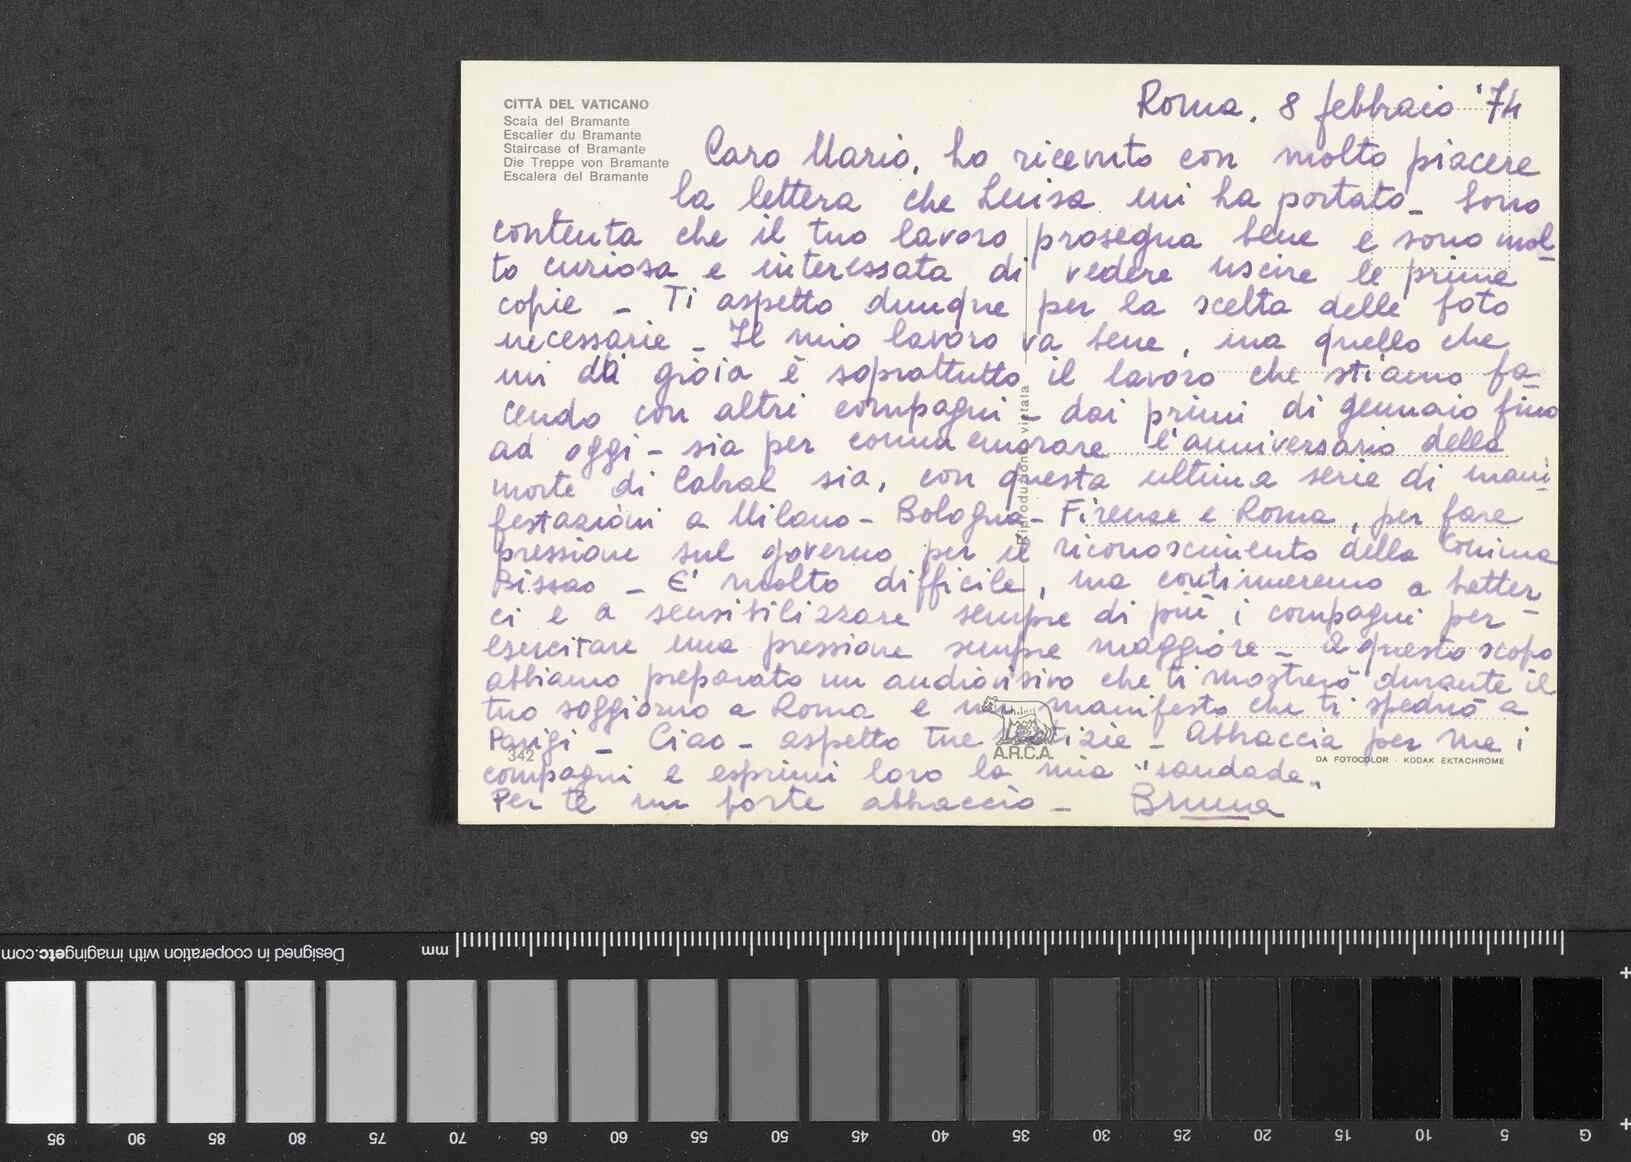 CITTÀ DEL VATICANO
Scala del Bramante
Escalier du Bramante
Staircase of Bramante
Die Treppe von Bramante
Escalera del Bramante
Roma, 8 febbraio '74
Caro Mario, ho ricevuto con molto piacere
la lettera che Luisa mi ha portato_ Sono
contenta che il tuo lavoro prosegua bene e sono mol-
to curiosa e interessata di vedere uscire le prime
copie _ Ti aspetto dunque per la scelta delle foto
necessarie _ Il mio lavoro va bene, ma quello che
mi dà gioia è soprattutto il lavoro che stiamo fa-
cendo con altri compagni _ dai primi di gennaio fino
ad oggi - sia per commemorare l'anniversario della
morte di Cabral sia, con questa ultima serie di mani-
festazioni a Milano - Bologna - Firenze e Roma, per fare
pressione sul governo per il riconoscimento della Guinea
Bissao _ E' molto difficile, ma continueremo a batter-
ci e a sensibilizzare sempre di più i compagni per
esercitare una pressione sempre maggiore _ A questo scopo
abbiamo preparato un audiovisivo che ti mostrerò durante il
tuo soggiorno a Roma e un manifesto che ti spedirò a
Parigi _ Ciao - aspetto tue notizie _ Abbraccia per me i
compagni e esprimi loro la mia "saudade"
Per te un forte abbraccio _ Bruna
Riproduzione vietata
342
A.R.C.A.
DA FOTOCOLOR - KODAK EKTACHROME
Designed in cooperation with imagingetc.com
mm
95 90 85 80 75 70 65 60 55 50 45 40 35 30 25 20 15 10 5 G